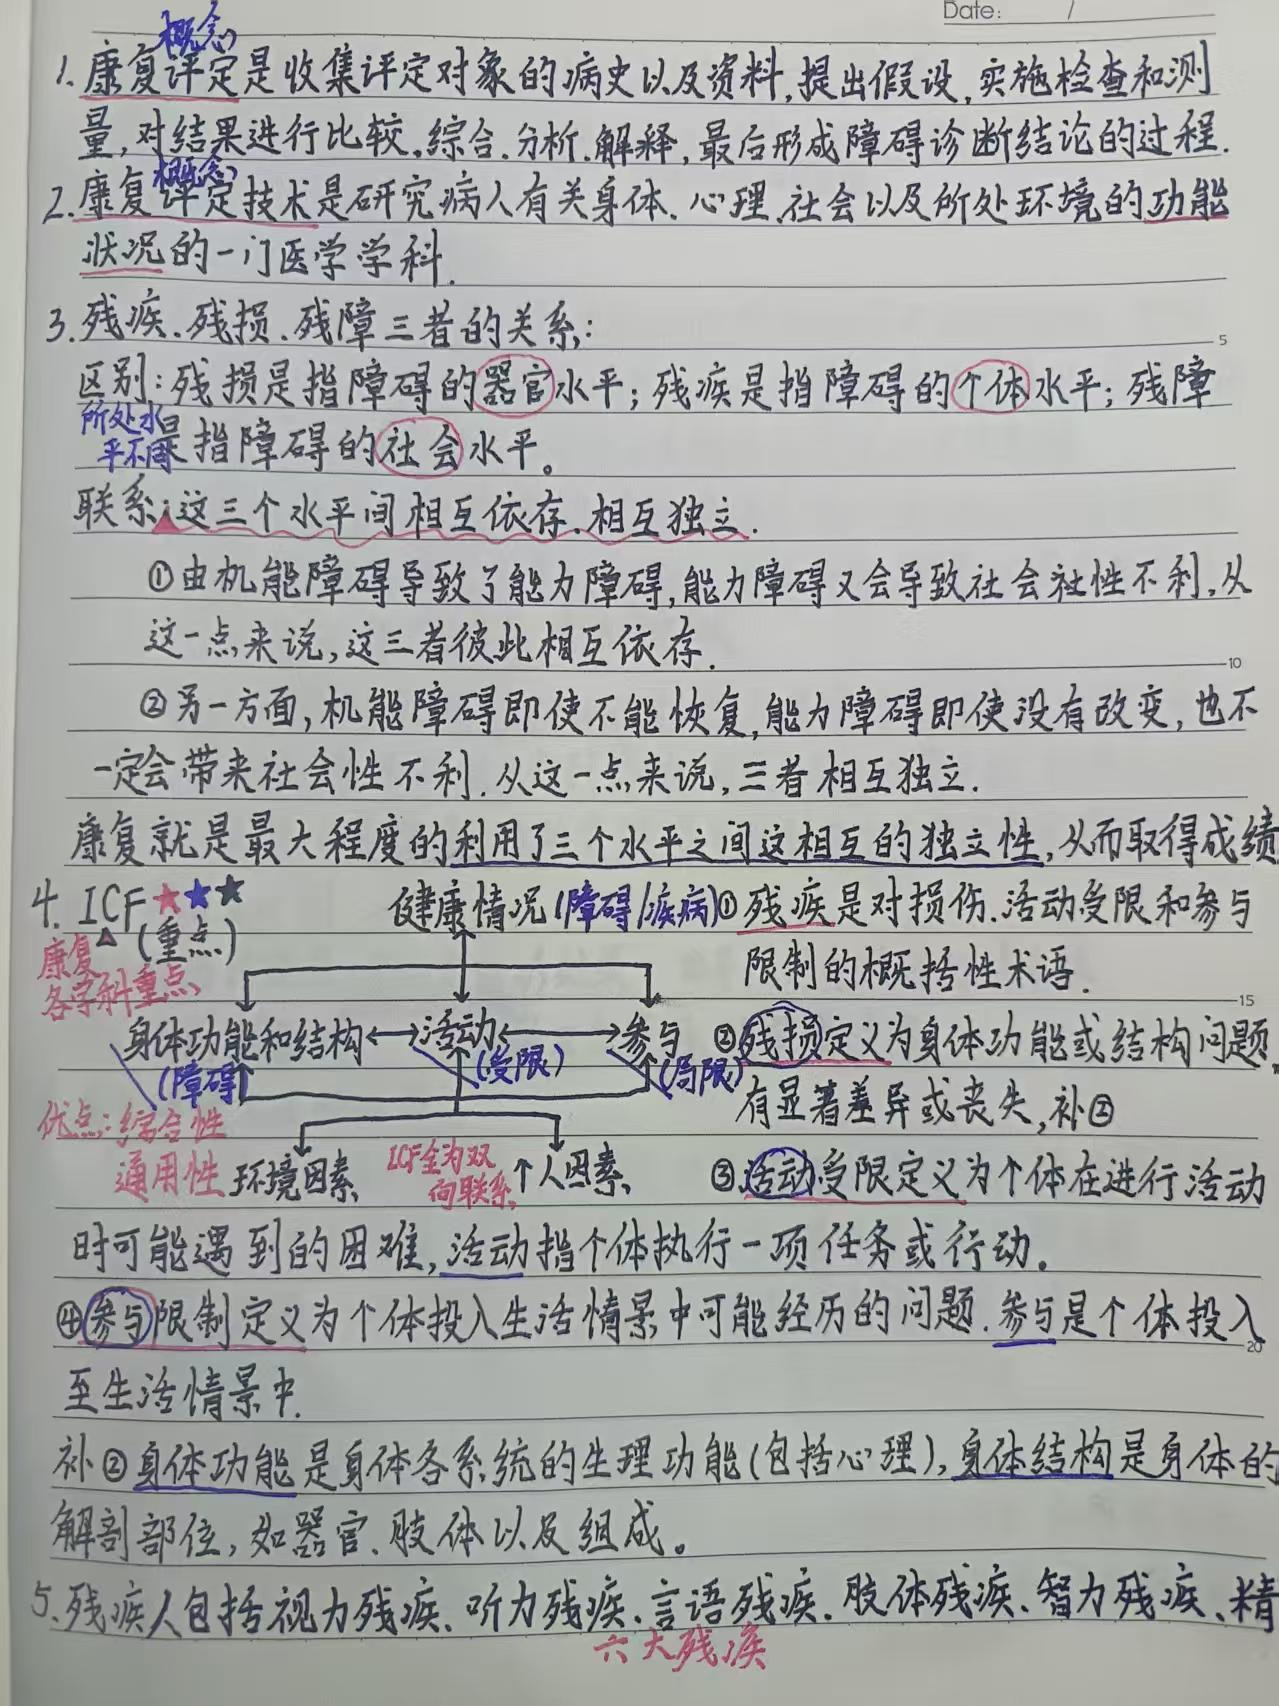 Date: /
概念
1. 康复评定是收集评定对象的病史以及资料,提出假设,实施检查和测
量,对结果进行比较.综合.分析.解释,最后形成障碍诊断结论的过程.
概念
2. 康复评定技术是研究病人有关身体.心理.社会以及所处环境的功能
状况的一门医学学科.
3. 残疾.残损.残障三者的关系:
5
区别:残损是指障碍的器官水平;残疾是指障碍的个体水平;残障
所处水
平不同
是指障碍的社会水平。
联系:这三个水平间相互依存.相互独立.
①由机能障碍导致了能力障碍,能力障碍又会导致社会社性不利,从
这一点来说,这三者彼此相互依存.
10
②另一方面,机能障碍即使不能恢复,能力障碍即使没有改变,也不
一定会带来社会性不利.从这一点来说,三者相互独立.
康复就是最大程度的利用了三个水平之间这相互的独立性,从而取得成绩
4. ICF★★★
(重点)
康复
各学科重点
健康情况(障碍/疾病)
①残疾是对损伤.活动受限和参与
限制的概括性术语.
15
身体功能和结构
活动
参与
(障碍)
(受限)
(局限)
②残损定义为身体功能或结构问题,
有显著差异或丧失,补②
优点:综合性
通用性
环境因素
ICF全为双
向联系
个人因素
③活动受限定义为个体在进行活动
时可能遇到的困难,活动指个体执行一项任务或行动。
④参与限制定义为个体投入生活情景中可能经历的问题.参与是个体投入
20
至生活情景中.
补②身体功能是身体各系统的生理功能(包括心理),身体结构是身体的
解剖部位,如器官.肢体以及组成。
5. 残疾人包括视力残疾、听力残疾、言语残疾、肢体残疾、智力残疾、精
六大残疾